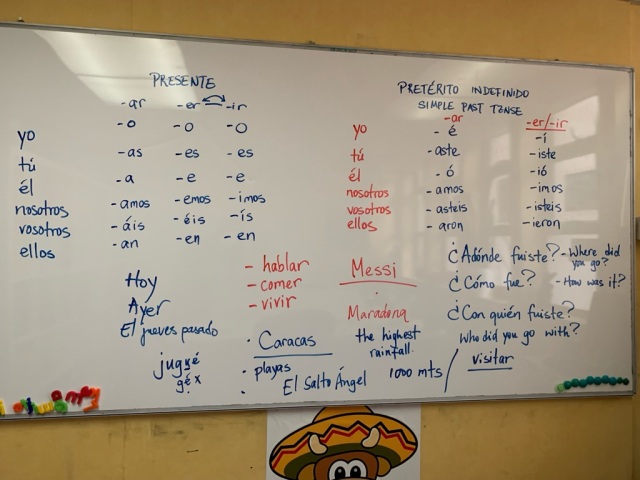 PRESENTE
-ar -er -ir
yo -o -o -o
tú -as -es -es
él -a -e -e
nosotros -amos -emos -imos
vosotros -áis -éis -ís
ellos -an -en -en
PRETÉRITO INDEFINIDO
SIMPLE PAST TENSE
-ar -er/-ir
yo -é -í
tú -aste -iste
él -ó -ió
nosotros -amos -imos
vosotros -asteis -isteis
ellos -aron -ieron
Hoy
Ayer
El jueves pasado
jugué
gé x
- hablar
- comer
- vivir
Messi
Maradona
¿Adónde fuiste? - Where did you go?
¿Cómo fue? - How was it?
¿Con quién fuiste?
Who did you go with?
visitar
Caracas
playas
the highest
rainfall.
El Salto Ángel 1000 mts